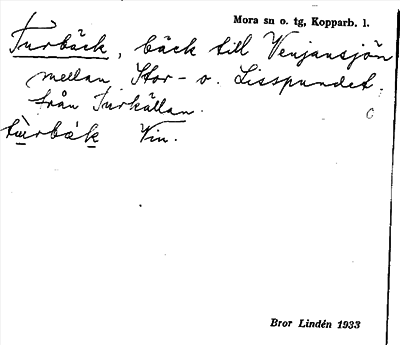 Mora sn o. tg, Kopparb. l.
Turbäck, bäck till Venjansjön
mellan Stor- o. Lisspundet,
från Turkällan.
c
tùrbäk Vin.
Bror Lindén 1933